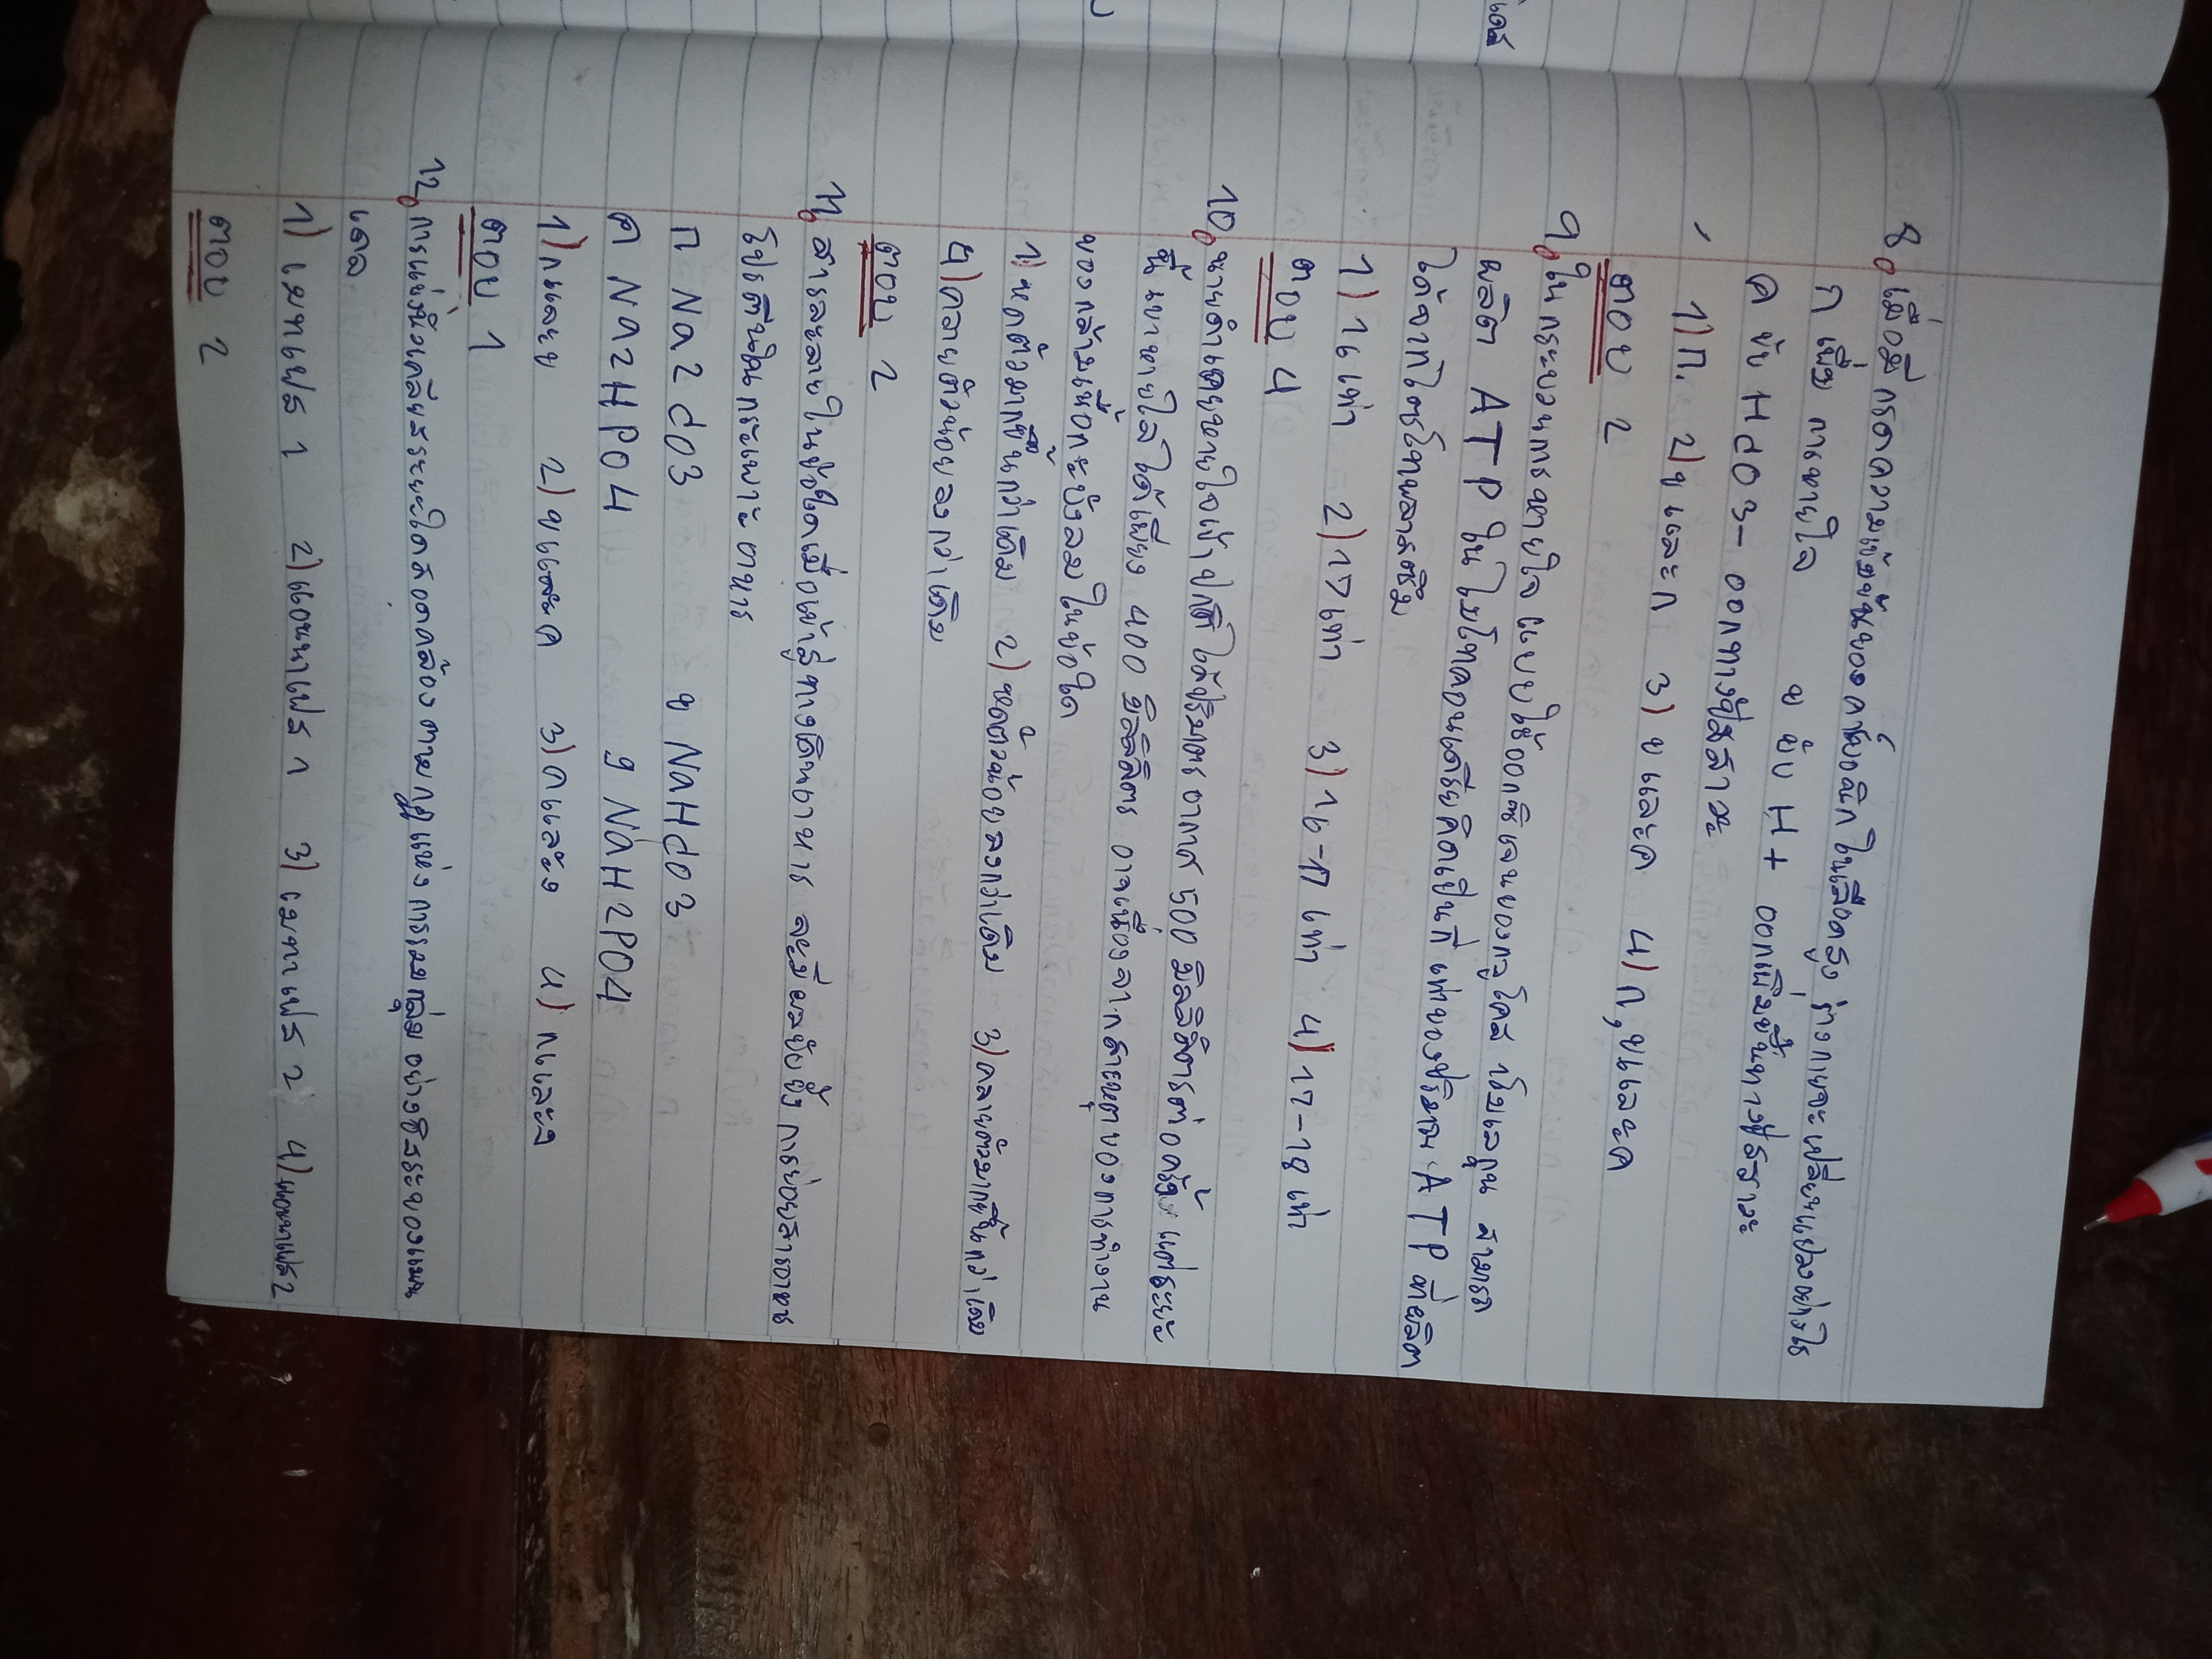 8. เมื่อมีกรดความเข้มข้นของคาร์บอนิก ในเลือดสูง ร่างกายจะเปลี่ยนแปลงอย่างไร
ก เพิ่ม การหายใจ ข ขับ H+ ออกเพิ่มขึ้นทางปัสสาวะ
ค ขับ HCO3- ออกทางปัสสาวะ
1) ก. 2) ข และ ก 3) ข และค 4) ก, ขและค
ตอบ 2
9. ในกระบวนการหายใจ แบบใช้ออกซิเจนของกลูโคส 1โมเลกุน สามารถ
ผลิต ATP ในไมโทคอนเดรียคิดเป็นกี่ เท่าของปริมาณ ATP ที่ผลิต
ได้จากไซโทพลาสซึม
1) 16 เท่า 2) 17 เท่า 3) 16-17 เท่า 4) 17-18 เท่า
ตอบ 4
10. นายดำเคยหายใจเข้าปกติได้ปริมาตรอากาศ 500 มิลลิลิตรต่อครั้ง แต่ระยะ
นี้ นายหายใจได้เพียง 400 มิลลิลิตร อาจเนื่องจากสาเหตุของการทำงาน
ของกล้ามเนื้อกระบังลม ในข้อใด
1) หดตัวมากขึ้นกว่าเดิม 2) หดตัวน้อยลงกว่าเดิม 3) คลายตัวมากขึ้นกว่าเดิม
4) คลายตัวน้อยลงกว่าเดิม
ตอบ 2
11. สารละลายในข้อใดเมื่อเข้าสู่ทางเดินอาหาร จะมีผลยับยั้ง การย่อยสารอาหาร
โปรตีนในกระเพาะ อาหาร
ก Na2CO3 ข NaHCO3
ค Na2HPO4 ง NaH2PO4
1) กและข 2) ขและค 3) คและง 4) กและง
ตอบ 1
12. การแบ่งนิวเคลียสระยะใดสอดคล้อง ตามกฎแห่ง การรวมกลุ่ม อย่างอิสระของเมน
เดล
1) เมทาเฟส 1 2) แอนาเฟส 1 3) เมทาเฟส 2 4) แอนาเฟส2
ตอบ 2